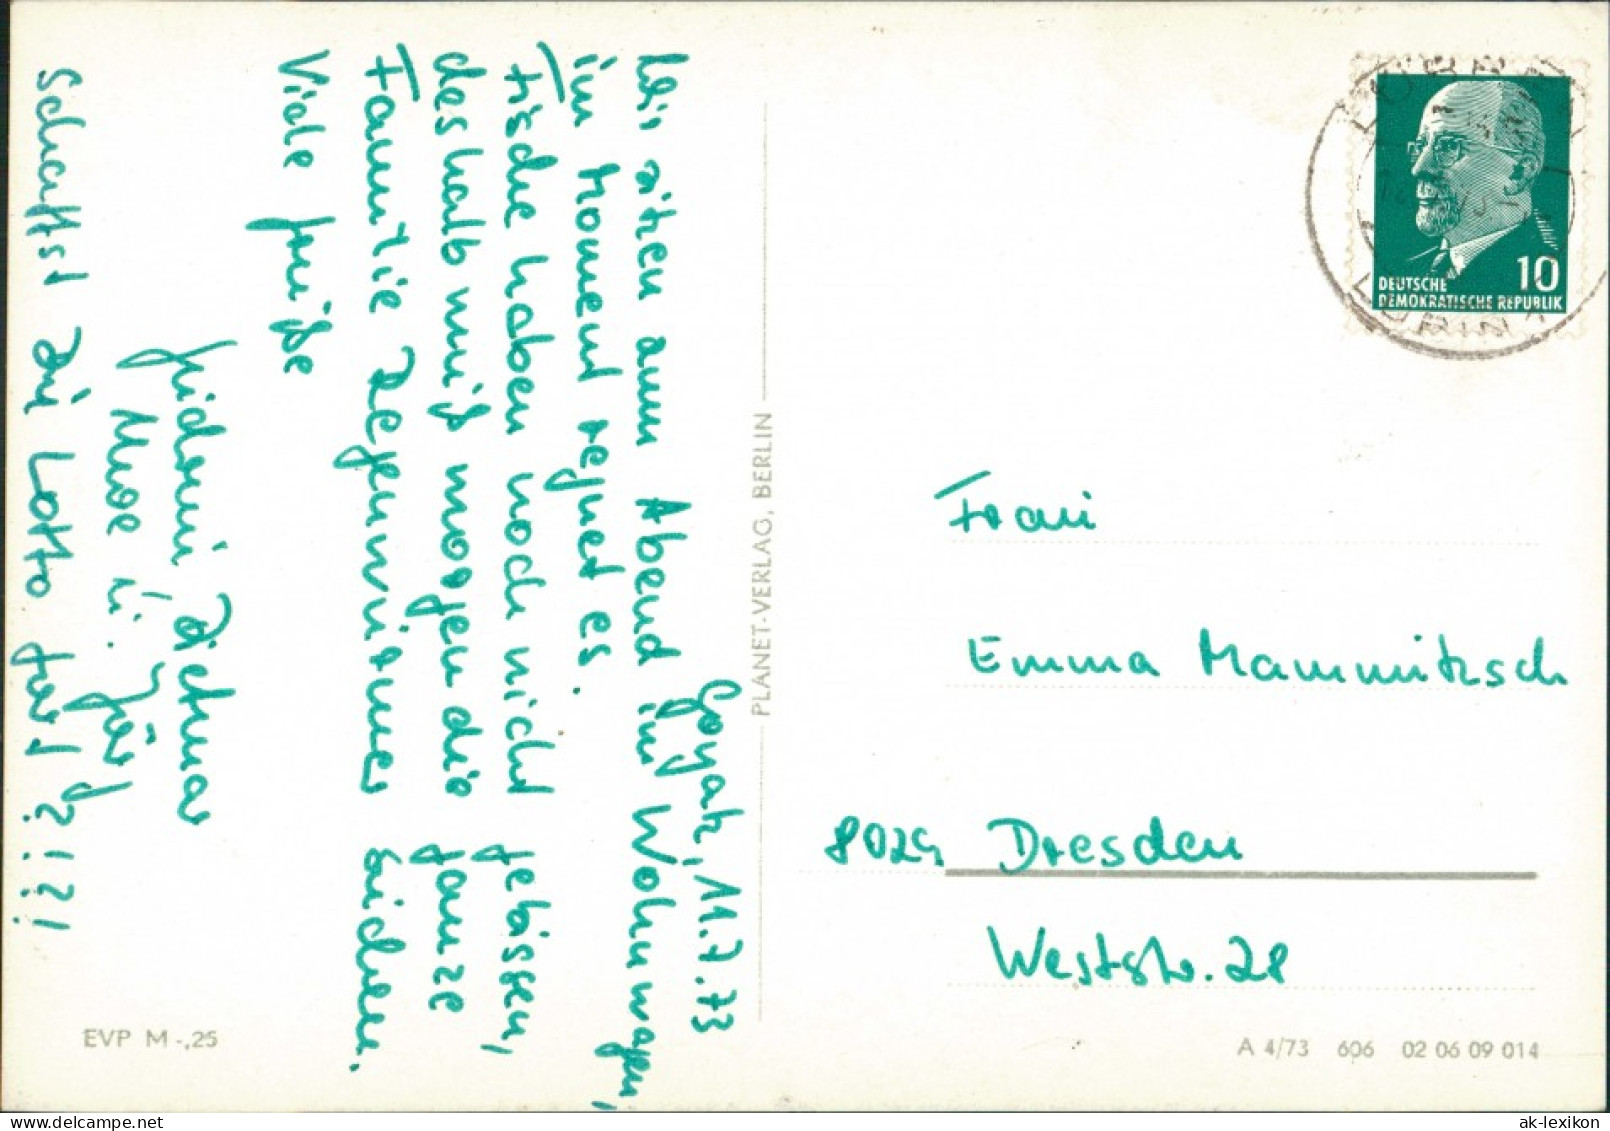 Goyatz, 11.7.73
Wir sitzen am Abend im Wohnwagen,
im Moment regnet es.
Fische haben noch nicht gebissen,
deshalb muß morgen die ganze
Familie Regenwürmer suchen.
Viele Grüße
Dietmar
u. Jörg
Schaffst Du Lotto
PLANET-VERLAG, BERLIN
DEUTSCHE
DEMOKRATISCHE REPUBLIK
10
Frau
Emma Mammitzsch
8029 Dresden
Weststr. 28
EVP M -,25
A 4/73 606 02 06 09 014
ak-lexikon